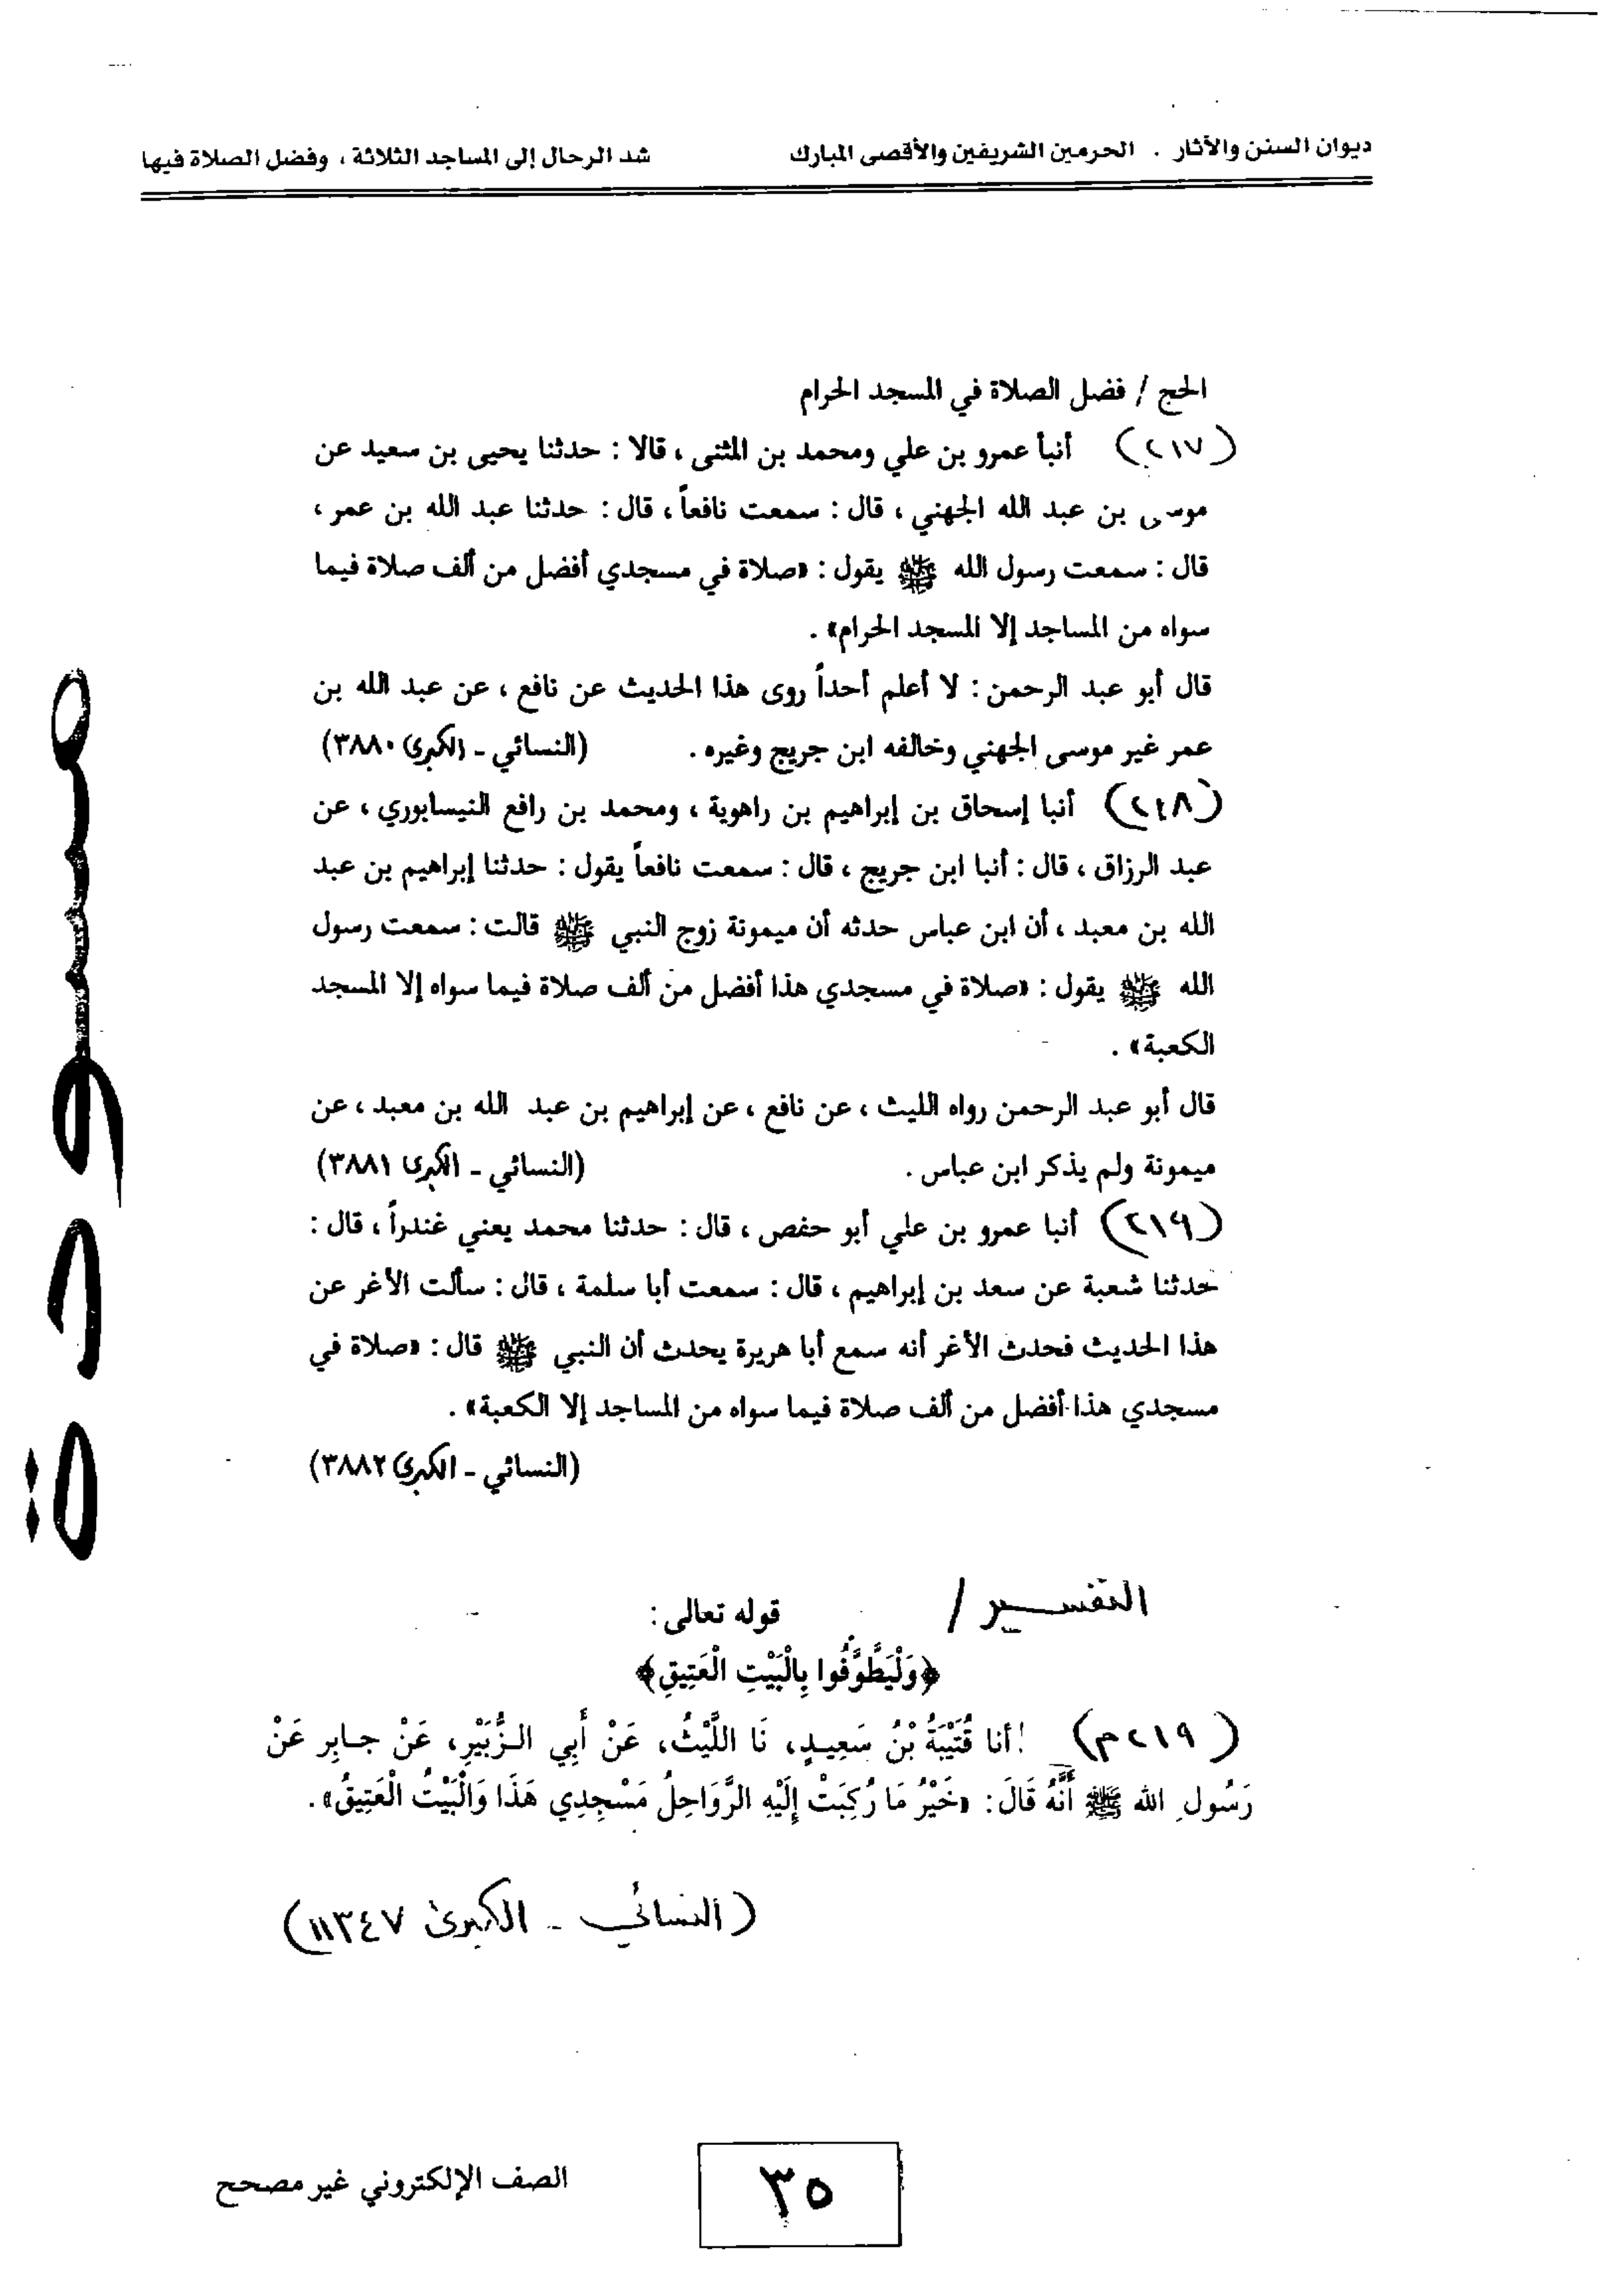 ديوان السنن والآثار . الحرمين الشريفين والأقصى المبارك شد الرحال إلى المساجد الثلاثة ، وفضل الصلاة فيها
الحج / فضل الصلاة في المسجد الحرام
(٢١٧) أنبأ عمرو بن علي ومحمد بن المثنى ، قالا : حدثنا يحيى بن سعيد عن
موسى بن عبد الله الجهني ، قال : سمعت نافعاً ، قال : حدثنا عبد الله بن عمر ،
قال : سمعت رسول الله ﷺ يقول : «صلاة في مسجدي أفضل من ألف صلاة فيما
سواه من المساجد إلا المسجد الحرام» .
قال أبو عبد الرحمن : لا أعلم أحداً روى هذا الحديث عن نافع ، عن عبد الله بن
عمر غير موسى الجهني وخالفه ابن جريج وغيره . (النسائي - الكبرى ٣٨٨٠)
(٢١٨) أنبا إسحاق بن إبراهيم بن راهوية ، ومحمد بن رافع النيسابوري ، عن
عبد الرزاق ، قال : أنبا ابن جريج ، قال : سمعت نافعاً يقول : حدثنا إبراهيم بن عبد
الله بن معبد ، أن ابن عباس حدثه أن ميمونة زوج النبي ﷺ قالت : سمعت رسول
الله ﷺ يقول : «صلاة في مسجدي هذا أفضل من ألف صلاة فيما سواه إلا المسجد
الكعبة» .
قال أبو عبد الرحمن رواه الليث ، عن نافع ، عن إبراهيم بن عبد الله بن معبد ، عن
ميمونة ولم يذكر ابن عباس . (النسائي - الكبرى ٣٨٨١)
(٢١٩) أنبا عمرو بن علي أبو حفص ، قال : حدثنا محمد يعني غندراً ، قال :
حدثنا شعبة عن سعد بن إبراهيم ، قال : سمعت أبا سلمة ، قال : سألت الأغر عن
هذا الحديث فحدث الأغر أنه سمع أبا هريرة يحدث أن النبي ﷺ قال : «صلاة في
مسجدي هذا أفضل من ألف صلاة فيما سواه من المساجد إلا الكعبة» .
(النسائي - الكبرى ٣٨٨٢)
التفسير / قوله تعالى :
﴿وَلْيَطَّوَّفُوا بِالْبَيْتِ الْعَتِيقِ﴾
(٢١٩م) أنا قُتَيْبَةُ بْنُ سَعِيدٍ، نَا اللَّيْثُ، عَنْ أَبِي الزُّبَيْرِ، عَنْ جابِر عَنْ
رَسُولِ الله ﷺ أَنَّهُ قَالَ: «خَيْرُ مَا رُكِبَتْ إِلَيْهِ الرَّوَاحِلُ مَسْجِدِي هَذَا وَالْبَيْتُ الْعَتِيقُ» .
(النسائي - الكبرى ١١٣٤٧)
مسودة
٣٥
الصف الإلكتروني غير مصحح